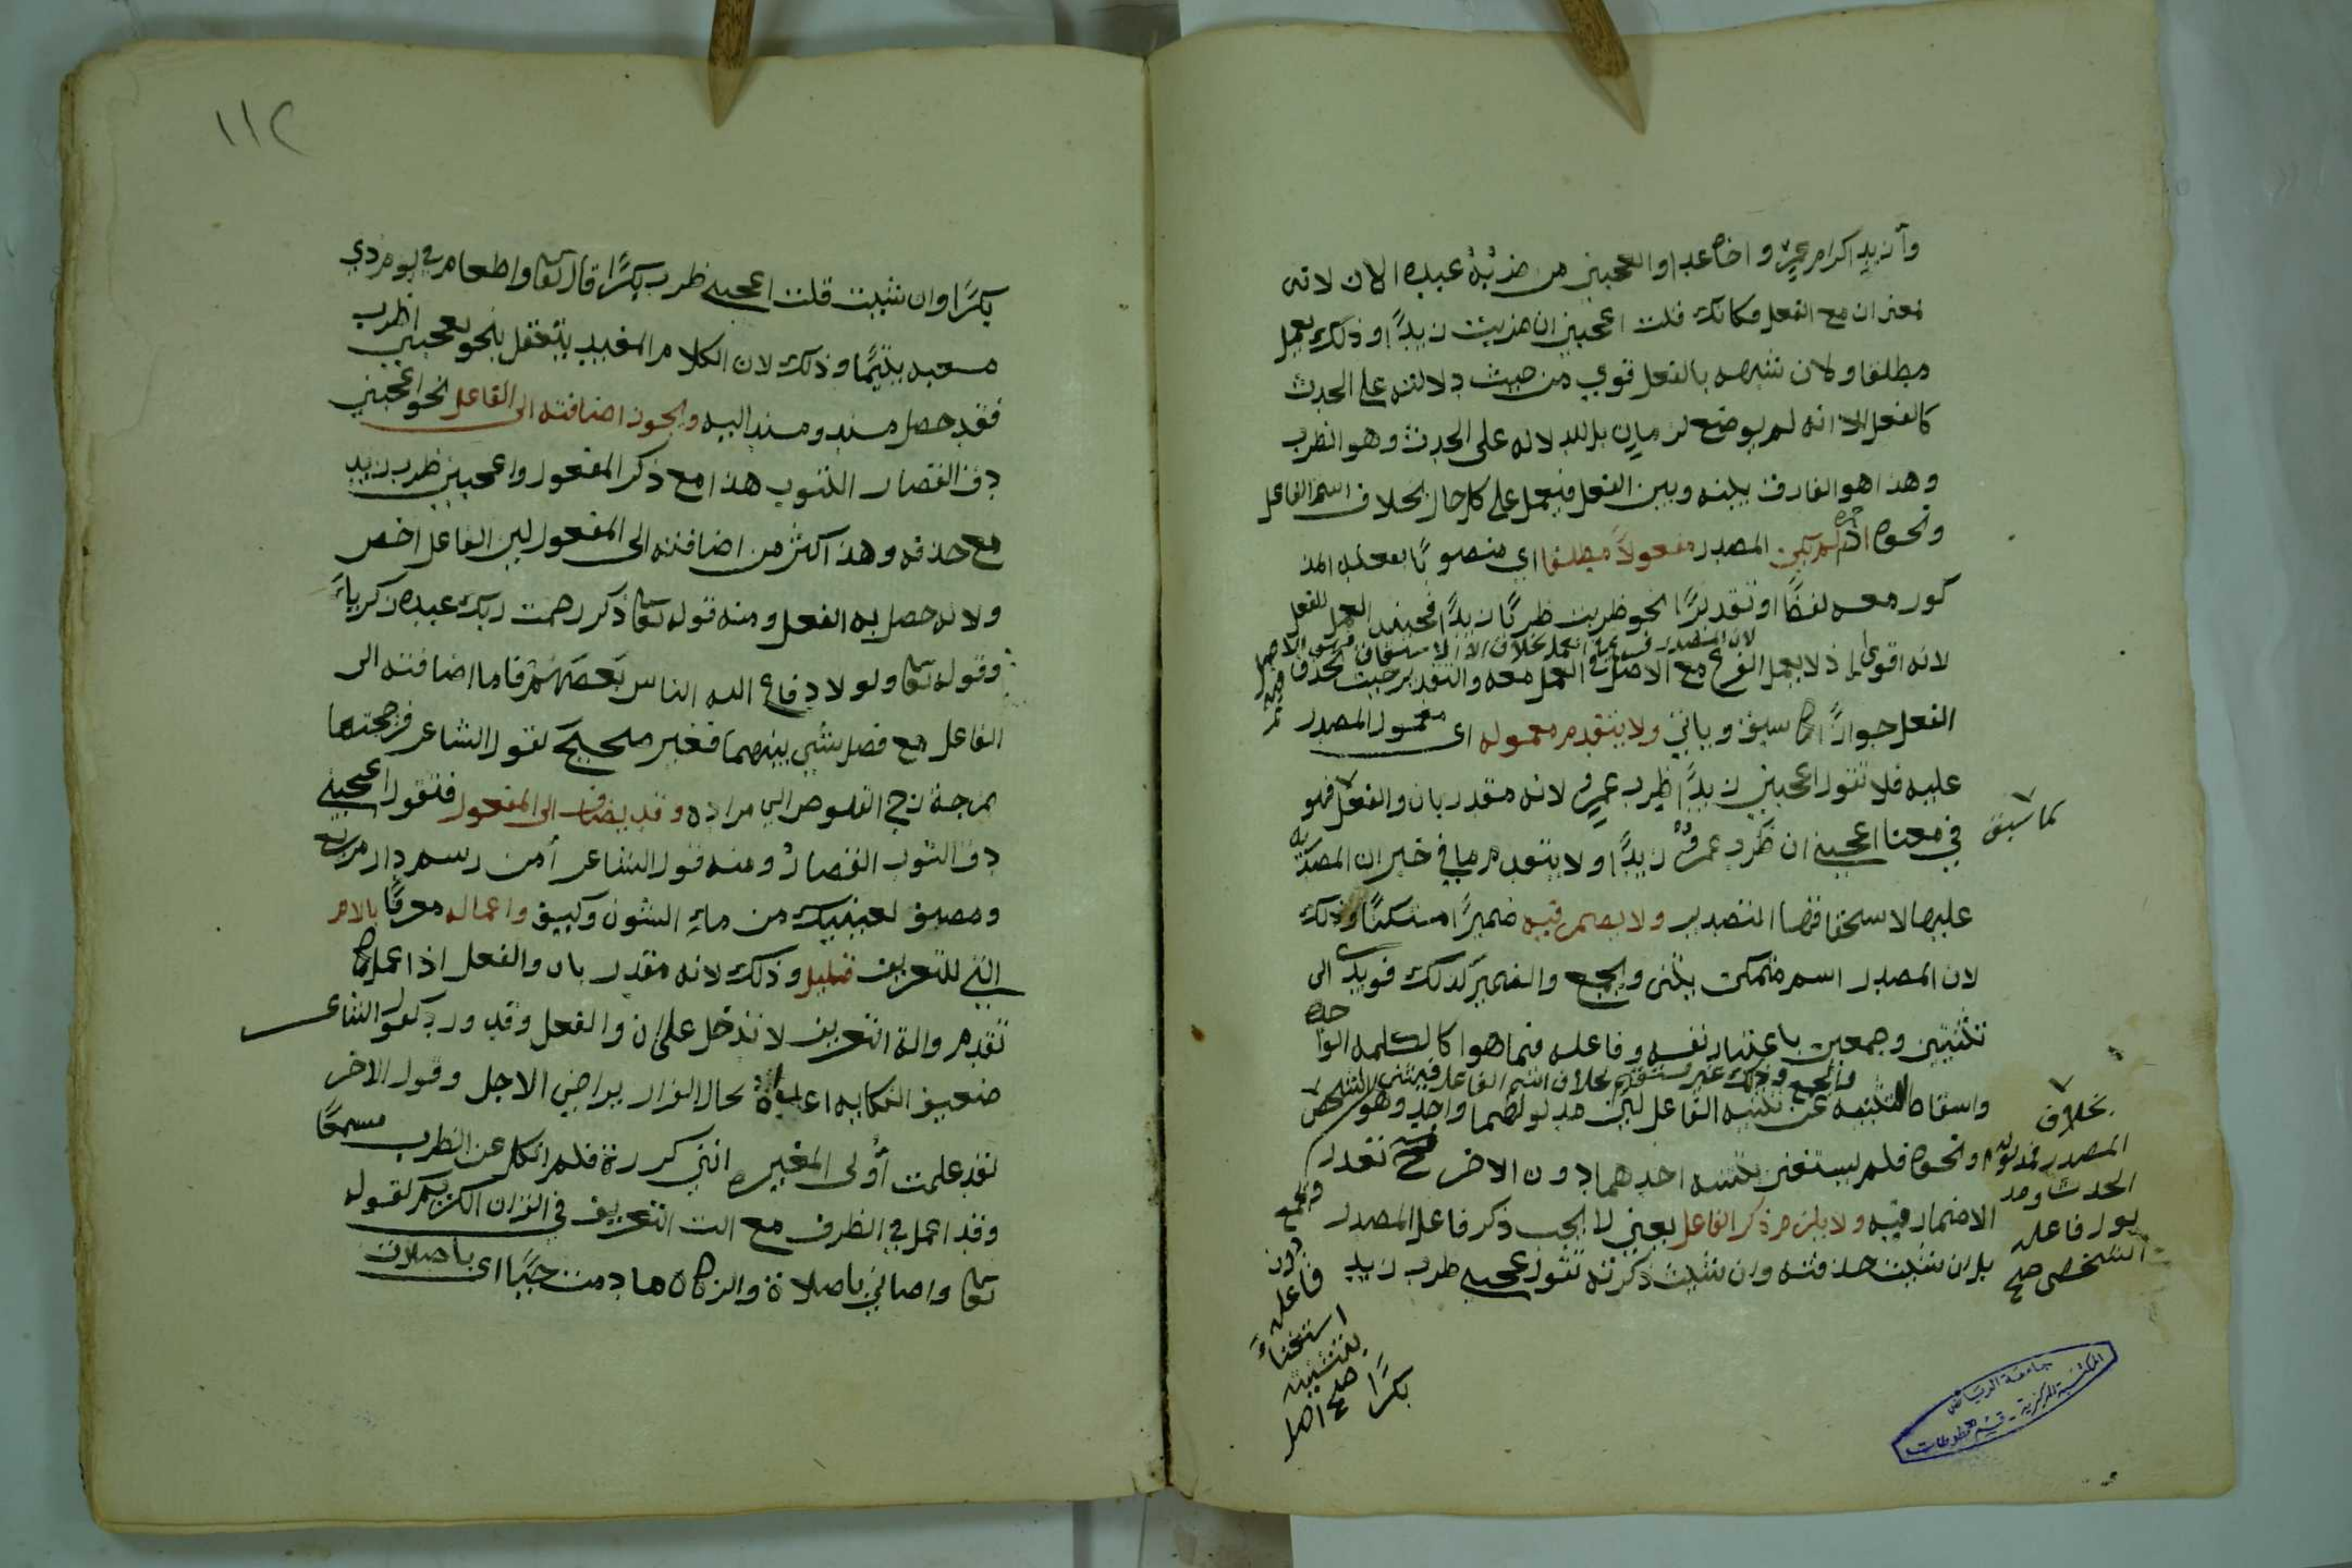 وأريد اكرام عمرو اخاه غدا واعجبني من ضربه عبده الان لانه
بمعنى ان مع الفعل فكانك قلت اعجبني ان ضربت زيدًا وذلك يعمل
مطلقا ولان شبهه بالفعل قوي من حيث دلالته على الحدث
كالفعل الا انه لم يوضع لزمان بل للدلاله على الحدث وهو الظرب
وهذا هو الفارق بينه وبين الفعل فيعمل على كل حال بخلاف اسم الفاعل
ونحوه اذا لم يكن المصدر مفعولاً مطلقا اي منصوبًا بفعله المذ
كور معه لفظًا او تقديرًا نحو ظربت ظربًا زيدًا فحينئذ العمل للفعل
لانه اقوى اذ لا يعمل الفرع مع الاصل العمل معه والتقدير حيث يحذف
الفعل جوازًا كما سبق وياتي ولا يتقدم معموله اى معمول المصدر
عليه فلا تقول اعجبني زيدًا ظرب عمرو لانه مقدر بان والفعل فهو
كما سبق
في معنا اعجبني ان ظرب عمرو زيدًا ولا يتقدم ما في خبر ان المصدريه
عليها لاستحقاقها التصدير ولا يضمر فيه ضميرًا مستكنًا وذلك
لان المصدر اسم متمكن يثنى ويجمع والضمير كذلك فيودي الى
تثنيتين وجمعين باعتبار نفسه وفاعله فيما هوا كالكلمه الوا
حده
والجمع وذلك غير مستقيم بخلاف اسم الفاعل فيثنى
واسقاط التثنيه عن تثنيه الفاعل لان مدلولهما واحد وهو الشخص
ونحوه فلم يستغن بتثنيه احدهما دون الاخر فتعذر
الاضمار فيه ولا يلزم ذكر الفاعل يعني لا يجب ذكر فاعل المصدر
بل ان شيت حذفته وان شيت ذكرته تقول اعجبني ظرب زيد
بكرًا
بخلاف
المصدر فمدلوله
الحدث ومد
لول فاعله
الشخص صح
ويجمع
دون
فاعله
استغناءً
بتثنيته
صح اصل
جامعة الرياض
المكتبة المركزية - قسم المخطوطات
١١٢
بكرًا وان شيت قلت اعجبني ظرب بكرًا قال تعا او اطعام في يوم ذي
مسغبه يتيمًا وذلك لان الكلام المفيد يتعقل بنحو يعجبني اظرب
فقد حصل مسند ومسند اليه ويجوز اضافته الى الفاعل نحو اعجبني
دق القصار الثوب هذا مع ذكر المفعول واعجبني ظرب زيد
مع حذفه وهذا اكثر من اضافته الى المفعول لان الفاعل اخص
ولانه حصل به الفعل ومنه قوله تعا ذكر رحمت ربك عبده زكرياءَ
وقوله تعا ولولا دفاع الله الناس بعضهم فاما اضافته الى
الفاعل مع فصل بشي بينهما فغير صحيح لقول الشاعر فزججتها
بمزجة زج القلوص ابي مزاده وقد يضاف الى المفعول فتقول اعجبني
دق الثوب القصارُ ومنه قول الشاعر أمن رسم دار مربع
ومصيف لعينيك من ماءِ الشون وكيف واعماله معرفًا بالام
التي للتعريف قليل وذلك لانه مقدر بان والفعل اذا عمل كما
تقدم والة التعريف لا تدخل على ان والفعل وقد ورد كقول الشاعر
ضعيف النكايه اعداءه يخال الفرار يراخي الاجل وقول الاخر
لقد علمت أولى المغيره انني كررت فلم انكل عن الظرب مسمعًا
وقد اعمل في الظرف مع الت التعريف في القران الكريم كقوله
تعا واصاني باصلاة والزكاة ما دمت حيًا اى باصلات